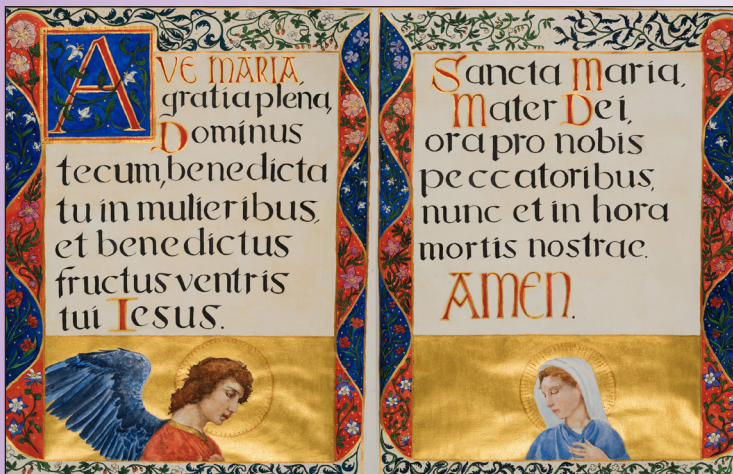 AVE MARIA,
gratia plena,
Dominus
tecum, benedicta
tu in mulieribus,
et benedictus
fructus ventris
tui Iesus.
Sancta Maria,
Mater Dei,
ora pro nobis
peccatoribus,
nunc et in hora
mortis nostrae.
AMEN.